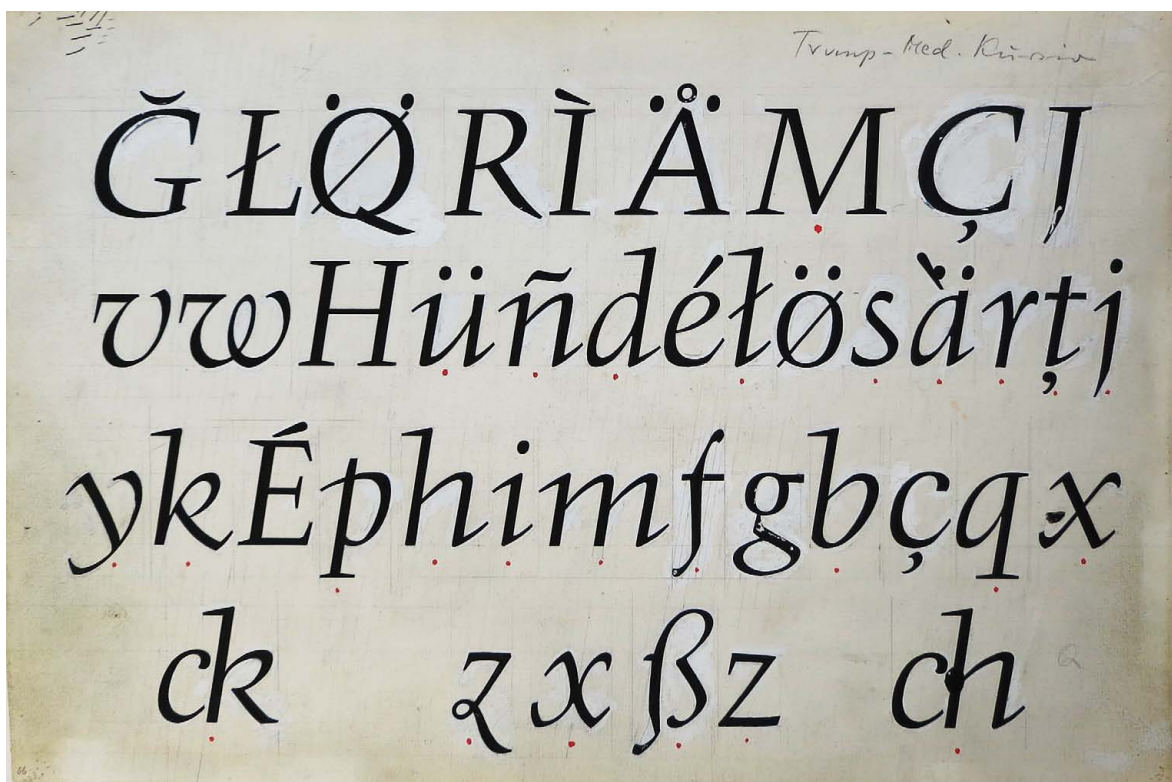 Trump-Med. Kursiv
ĞŁØ̈RÌÅ̈MÇJ
vwHüñdéłø̈sàärţj
ykÉphimfgbçqx
ck zxßz ch
66